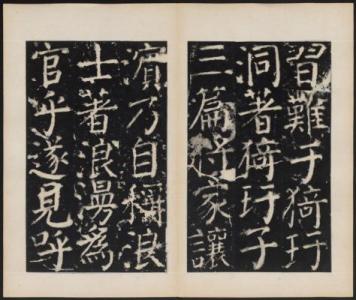 習難于猗玗
洞著猗玗子
三篇將家讓
濱乃自稱浪
士著浪漫為
官乎遂見呼